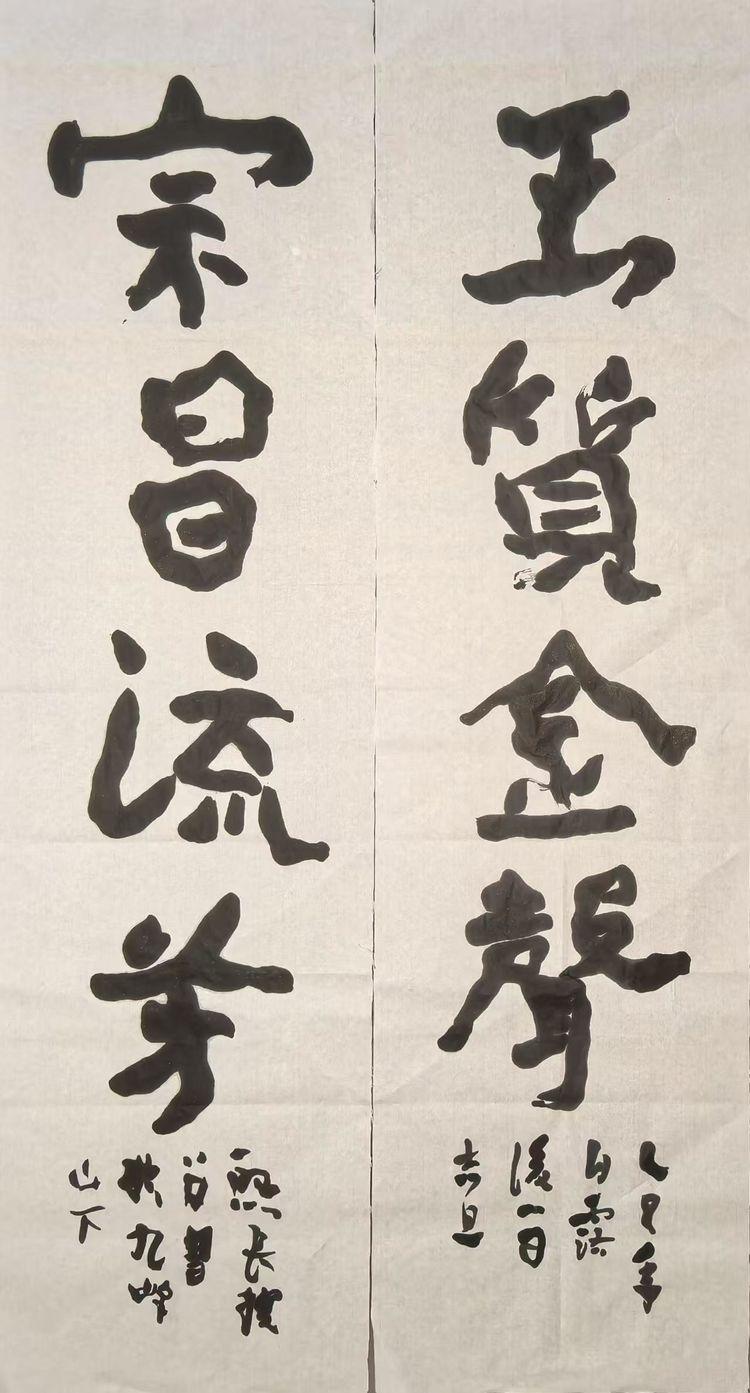 玉質金聲
乙巳年
白露
後一日
吉旦
宗昌流芳
長
書
於九峰
山下